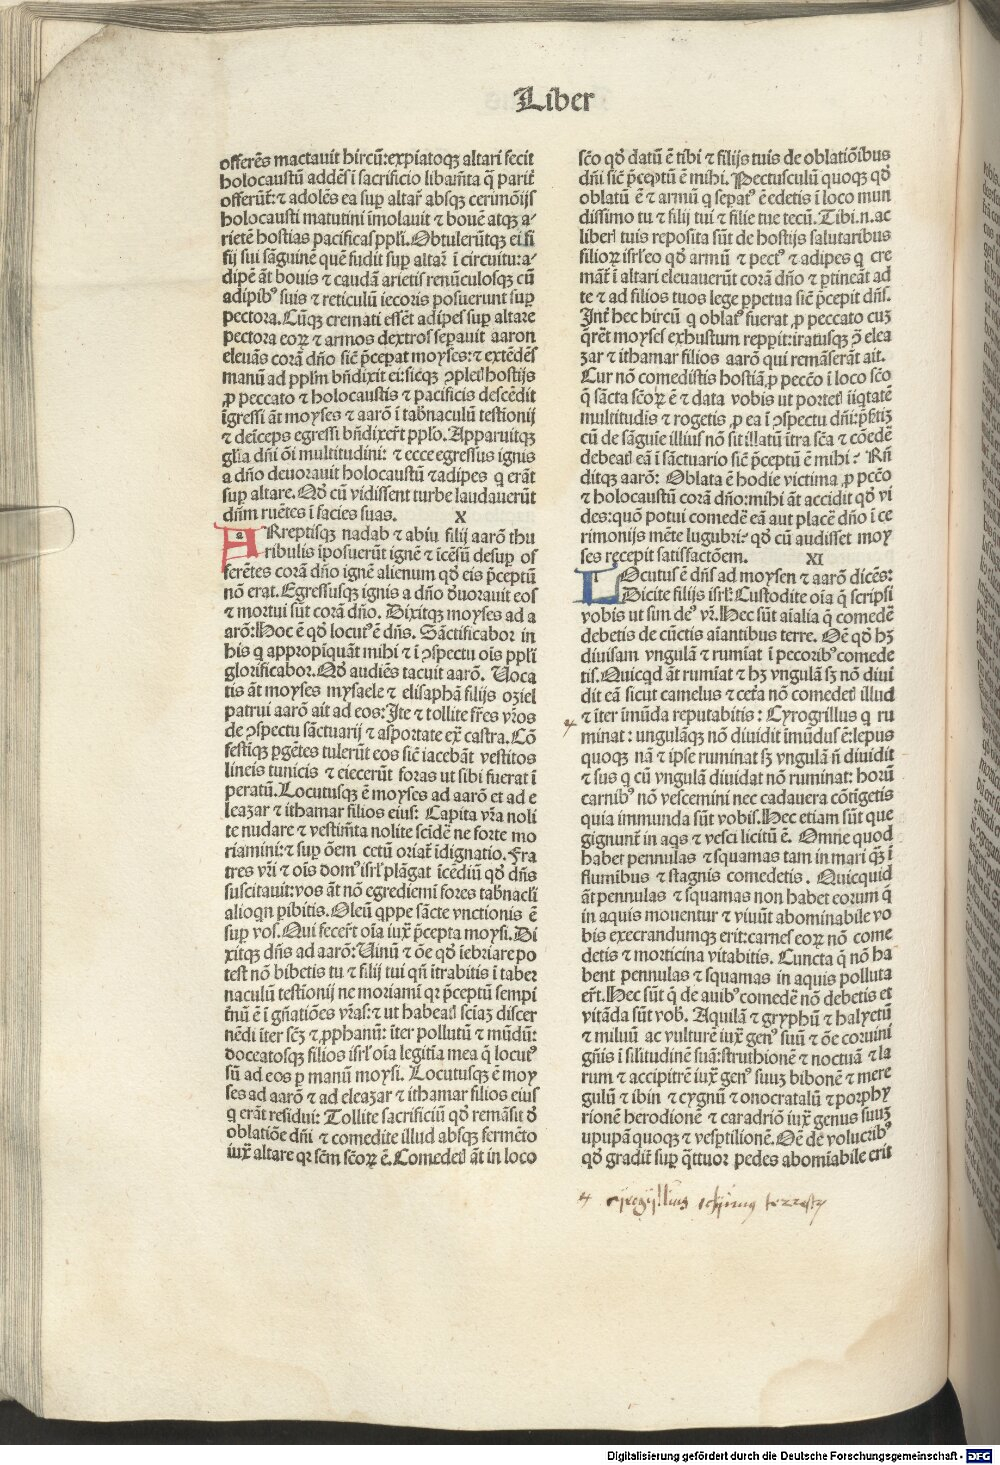 Liber
offerēs mactauit hircū:expiatoqꝫ altari fecit
holocaustū addēs ī sacrificio libam̄ta q̄ parit̄
offerūt̄:⁊ adolēs ea suꝑ altar̄ absqꝫ cerimōijs
holocausti matutini īmolauit ⁊ bouē atqꝫ a⸗
rietē hostias pacificas ppl̓i.Obtulerūtqꝫ ei fi
lij sui sāguinē quē fudit suꝑ altar̄ ī circuitu:a⸗
dipē āt bouis ⁊ caudā arietis renūculosqꝫ cū
adipibꝰ suis ⁊ reticulū iecoris posuerunt suꝑ
pectora.Cūqꝫ cremati essēt adipes suꝑ altare
pectora eoꝝ ⁊ armos dextros seꝑauit aaron
eleuās corā dn̄o sic̄ p̄ceꝑat moyses:⁊ extēdēs
manū ad ppl̄m bn̄dixit ei:sicqꝫ ꝯplet̄ hostijs
ꝓ peccato ⁊ holocaustis ⁊ pacificis descēdit
īgressi āt moyses ⁊ aarō ī tab̄naculū testionij
⁊ deīceps egressi bn̄dixer̄t pplo.Apparuitqꝫ
gl̄ia dn̄i ōi multitudini: ⁊ ecce egressus ignis
a dn̄o deuorauit holocaustū ⁊ adipes q̄ erāt
suꝑ altare.Qd̄ cū vidissent turbe laudauerūt
dn̄m ruētes ī facies suas. X
ARreptisqꝫ nadab ⁊ abiu filij aarō thu
ribulis īposuerūt ignē ⁊ īcēsū desuꝑ of
ferētes corā dn̄o ignē alienum qd̄ eis p̄ceptū
nō erat.Egressusqꝫ ignis a dn̄o d̄uorauit eos
⁊ mortui sūt corā dn̄o. Dixitqꝫ moyses ad a
arō:Hoc ē qd̄ locutꝰ ē dn̄s. Sāctificabor in
his q̄ appropīquāt mihi ⁊ ī ꝯspectu oīs ppl̓i
glorificabor.Qd̄ audiēs tacuit aarō. Uoca
tis āt moyses mysaele ⁊ elisaphā filijs oziel
patrui aarō ait ad eos:Ite ⁊ tollite fr̄es vr̄os
de ꝯspectu sāctuarij ⁊ asportate ex̄ castra.Cō
festiqꝫ ꝑgētes tulerūt eos sic̄ iacebāt vestitos
lineis tunicis ⁊ eiecerūt foras ut sibi fuerat ī
peratū.Locutusqꝫ ē moyses ad aarō et ad e
leazar ⁊ ithamar filios eius: Capita vr̄a noli
te nudare ⁊ vestim̄ta nolite scīdē ne forte mo
riamini:⁊ suꝑ ōem cetū oriat̄ īdignatio.Fra
tres vr̄i ⁊ oīs domꝰ isrl̓ plāgat īcēdiū qd̄ dn̄s
suscitauit:vos āt nō egrediemī fores tab̄nacl̓i
alioqn̄ ꝑibitis.Oleū qppe sācte vnctionis ē
suꝑ vos.Qui fecer̄t oīa iux̄ p̄cepta moysi.Di
xitqꝫ dn̄s ad aarō:Uinū ⁊ ōe qd̄ īebriare po
test nō bibetis tu ⁊ filij tui qn̄ ītrabitis ī taber
naculū testionij ne moriamī qr p̄ceptū sempi
t̄nū ē ī gn̄atiōes vr̄as:⁊ ut habeat̄ sciaꝫ discer
nēdi īter sc̄ꝫ ⁊ ꝓphanū: īter pollutū ⁊ mūdū:
doceatosqꝫ filios isrl̓ oīa legitīa mea q̄ locutꝰ
sū ad eos ꝑ manū moysi. Locutusqꝫ ē moy
ses ad aarō ⁊ ad eleazar ⁊ ithamar filios eius
q̄ erāt residui: Tollite sacrificiū qd̄ remāsit d̄
oblatiōe dn̄i ⁊ comedite illud absqꝫ fermēto
iux̄ altare qr sc̄m sc̄oꝝ ē.Comedet̄ āt in loco
sc̄o qd̄ datū ē tibi ⁊ filijs tuis de oblatiōibus
dn̄i sic̄ p̄ceptū ē mihi. Pectusculū quoqꝫ qd̄
oblatū ē ⁊ armū q̄ seꝑatꝰ ē edetis ī loco mun
dissimo tu ⁊ filij tui ⁊ filie tue tecū.Tibi.n.ac
liber̄ tuis reposita sūt de hostijs salutaribus
filioꝝ isrl̓ eo qd̄ armū ⁊ pectꝰ ⁊ adipes q̄ cre
māt̄ ī altari eleuauerūt corā dn̄o ⁊ ꝑtineāt ad
te ⁊ ad filios tuos lege ꝑpetua sic̄ p̄cepit dn̄s.
Int̄ hec hircū q̄ oblatꝰ fuerat ꝓ peccato cuꝫ
q̄rēt moyses exhustum repꝑit:iratusqꝫ ꝯ elea
zar ⁊ ithamar filios aarō qui remāserāt ait.
Cur nō comedistis hostiā ꝓ pecc̄o ī loco sc̄o
q̄ sācta sc̄oꝝ ē ⁊ data vobis ut portet̄ iīqtatē
multitudīs ⁊ rogetis ꝓ ea ī ꝯspectu dn̄i:p̄sertīꝫ
cū de sāguīe illius nō sit illatū ītra sc̄a ⁊ cōedē
debeat̄ eā ī sāctuario sic̄ p̄ceptū ē mihi? Rn̄
ditqꝫ aarō: Oblata ē hodie victima ꝓ pcc̄o
⁊ holocaustū corā dn̄o:mihi āt accidit qd̄ vi
des:quō potui comedē eā aut placē dn̄o ī ce
rimonijs mēte lugubri? qd̄ cū audisset moy
ses recepit satisfactōem. XI
LOcutus ē dn̄s ad moysen ⁊ aarō dicēs:
Dicite filijs isrl̓:Custodite oīa q̄ scripsi
vobis ut sim deꝰ vr̄.Hec sūt aīalia q̄ comedē
debetis de cūctis aīantibus terre. Oē qd̄ hꝫ
diuisam vngulā ⁊ rumīat ī pecoribꝰ comede
tis.Quicqd āt rumīat ⁊ hꝫ vngulā sꝫ nō diui
dit eā sicut camelus ⁊ cet̄a nō comedet̄ illud
⁊ īter īmūda reputabitis: Cyrogrillus q̄ ru
minat: ungulāqꝫ nō diuidit īmūdus ē:lepus
quoqꝫ nā ⁊ ipse ruminat sꝫ vngulā n̄ diuidit
⁊ sus q̄ cū vngulā diuidat nō ruminat: horū
carnibꝰ nō vescemini nec cadauera cōtīgetis
quia immunda sūt vobis.Hec etiam sūt que
gignunt̄ in aqs ⁊ vesci licitū ē. Omne quod
habet pennulas ⁊ squamas tam in mari qꝫ̄ ī
flumibus ⁊ stagnis comedetis. Quicquid
āt pennulas ⁊ squamas non habet eorum q̄
in aquis mouentur ⁊ viuūt abominabile vo
bis execrandumqꝫ erit:carnes eoꝝ nō come
detis ⁊ morticina vitabitis. Cuncta q̄ nō ha
bent pennulas ⁊ squamas in aquis polluta
er̄t.Hec sūt q̄ de auibꝰ comedē nō debetis et
vitāda sūt vob̓. Aquilā ⁊ gryphū ⁊ halyetū
⁊ miluū ac vulturē iux̄ genꝰ suū ⁊ ōe coruini
gn̄is ī silitudinē suā:struthionē ⁊ noctuā ⁊ la
rum ⁊ accipitrē iux̄ genꝰ suuꝫ bibonē ⁊ mere
gulū ⁊ ibin ⁊ cygnū ⁊ onocratalū ⁊ porphy
rionē herodionē ⁊ caradriō iux̄ genus suuꝫ
upupā quoqꝫ ⁊ vesꝑtilionē.Oē de volucribꝰ
qd̄ gradit̄ suꝑ q̄ttuor pedes abomīabile erit
cyrogyllius
Digitalisierung gefördert durch die Deutsche Forschungsgemeinschaft - DFG